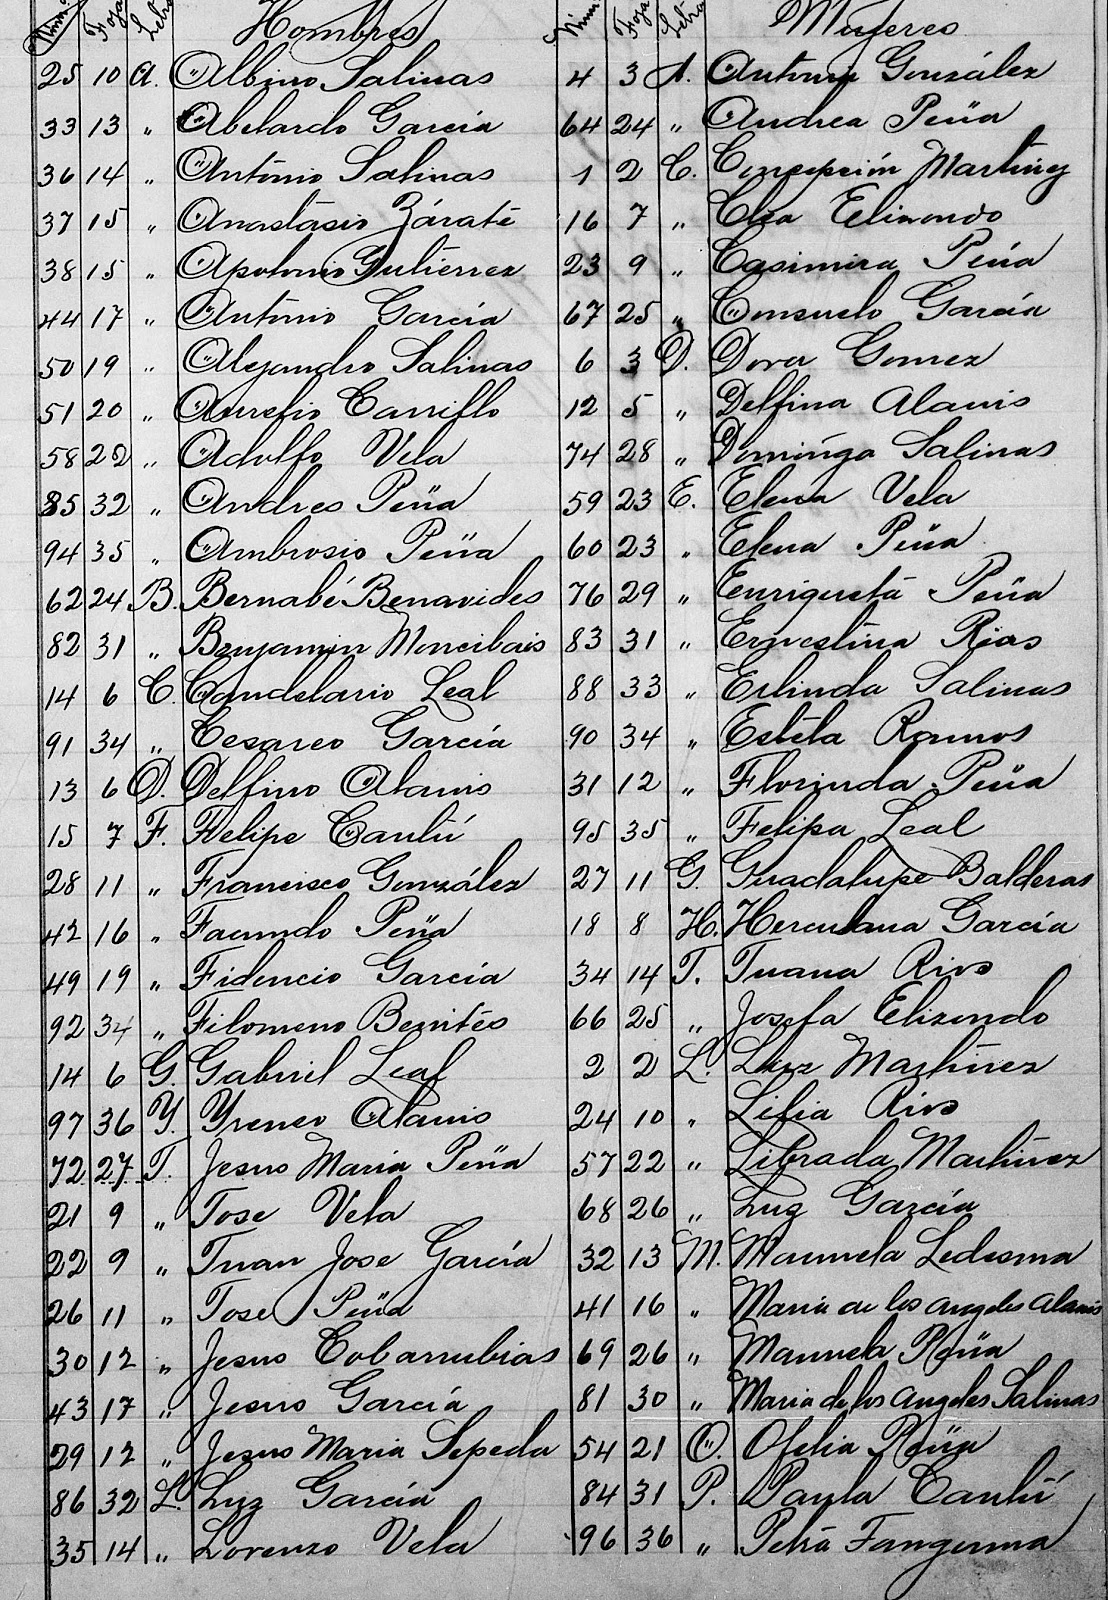 Núm. Foja Letra Hombres
25 10 A. Albino Salinas
33 13 " Abelardo García
36 14 " Antonio Salinas
37 15 " Anastasio Zárate
38 15 " Apolonio Gutierrez
44 17 " Antonio García
50 19 " Alejandro Salinas
51 20 " Aurelio Carrillo
58 22 " Adolfo Vela
85 32 " Andres Peña
94 35 " Ambrosio Peña
62 24 B. Bernabé Benavides
82 31 " Benjamin Moncibais
14 6 C. Candelario Leal
91 34 " Cesareo García
13 6 D. Delfino Alanis
15 7 F. Felipe Cantú
28 11 " Francisco González
42 16 " Facundo Peña
49 19 " Fidencio García
92 34 " Filomeno Benites
14 6 G. Gabriel Leal
97 36 Y. Yreneo Alanis
72 27 J. Jesus Maria Peña
21 9 " Jose Vela
22 9 " Juan Jose García
26 11 " Jose Peña
30 12 " Jesus Cobarrubias
43 17 " Jesus García
29 12 " Jesus Maria Sepeda
86 32 L. Luz García
35 14 " Lorenzo Vela
Núm. Foja Letra Mujeres
4 3 A. Antonia González
64 24 " Andrea Peña
1 2 C. Concepción Martinez
16 7 " Clea Elizondo
23 9 " Casimira Peña
67 25 " Consuelo García
6 3 D. Dora Gomez
12 5 " Delfina Alanis
74 28 " Dominga Salinas
59 23 E. Elena Vela
60 23 " Elena Peña
76 29 " Enriqueta Peña
83 31 " Ernestina Rios
88 33 " Erlinda Salinas
90 34 " Estela Ramos
31 12 " Florinda Peña
95 35 " Felipa Leal
27 11 G. Guadalupe Balderas
18 8 H. Herculana García
34 14 J. Juana Rios
66 25 " Josefa Elizondo
2 2 L. Luz Martinez
24 10 " Lilia Rios
57 22 " Librada Martinez
68 26 " Luz García
32 13 M. Manuela Ledesma
41 16 " Maria de los Angeles Alanis
69 26 " Manuela Peña
81 30 " Maria de los Angeles Salinas
54 21 O. Ofelia Peña
84 31 P. Paula Cantú
96 36 " Petra